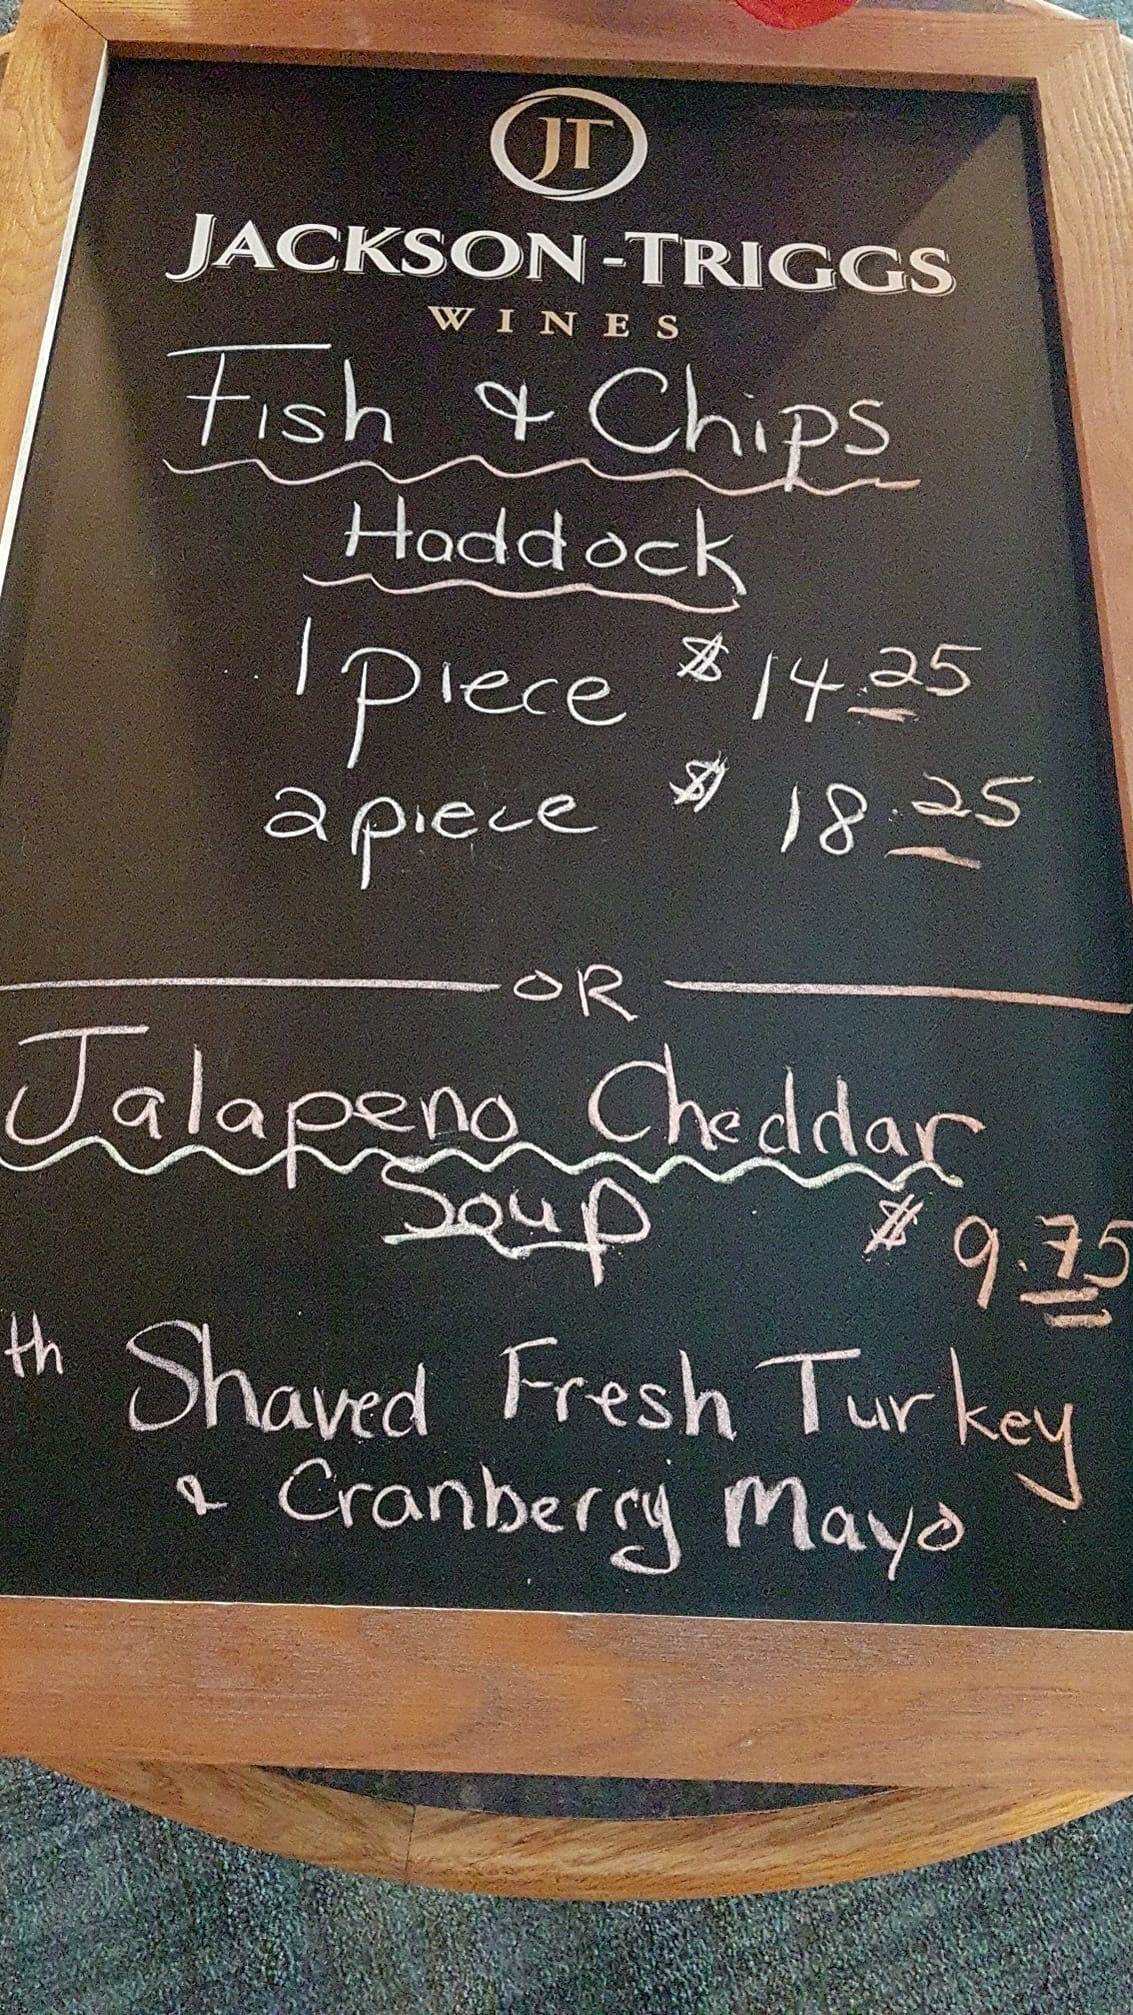 JT
JACKSON-TRIGGS
WINES
Fish & Chips
Haddock
1 piece $ 14.25
2 piece $ 18.25
OR
Jalapeno Cheddar
Soup $ 9.75
th Shaved Fresh Turkey
& Cranberry Mayo